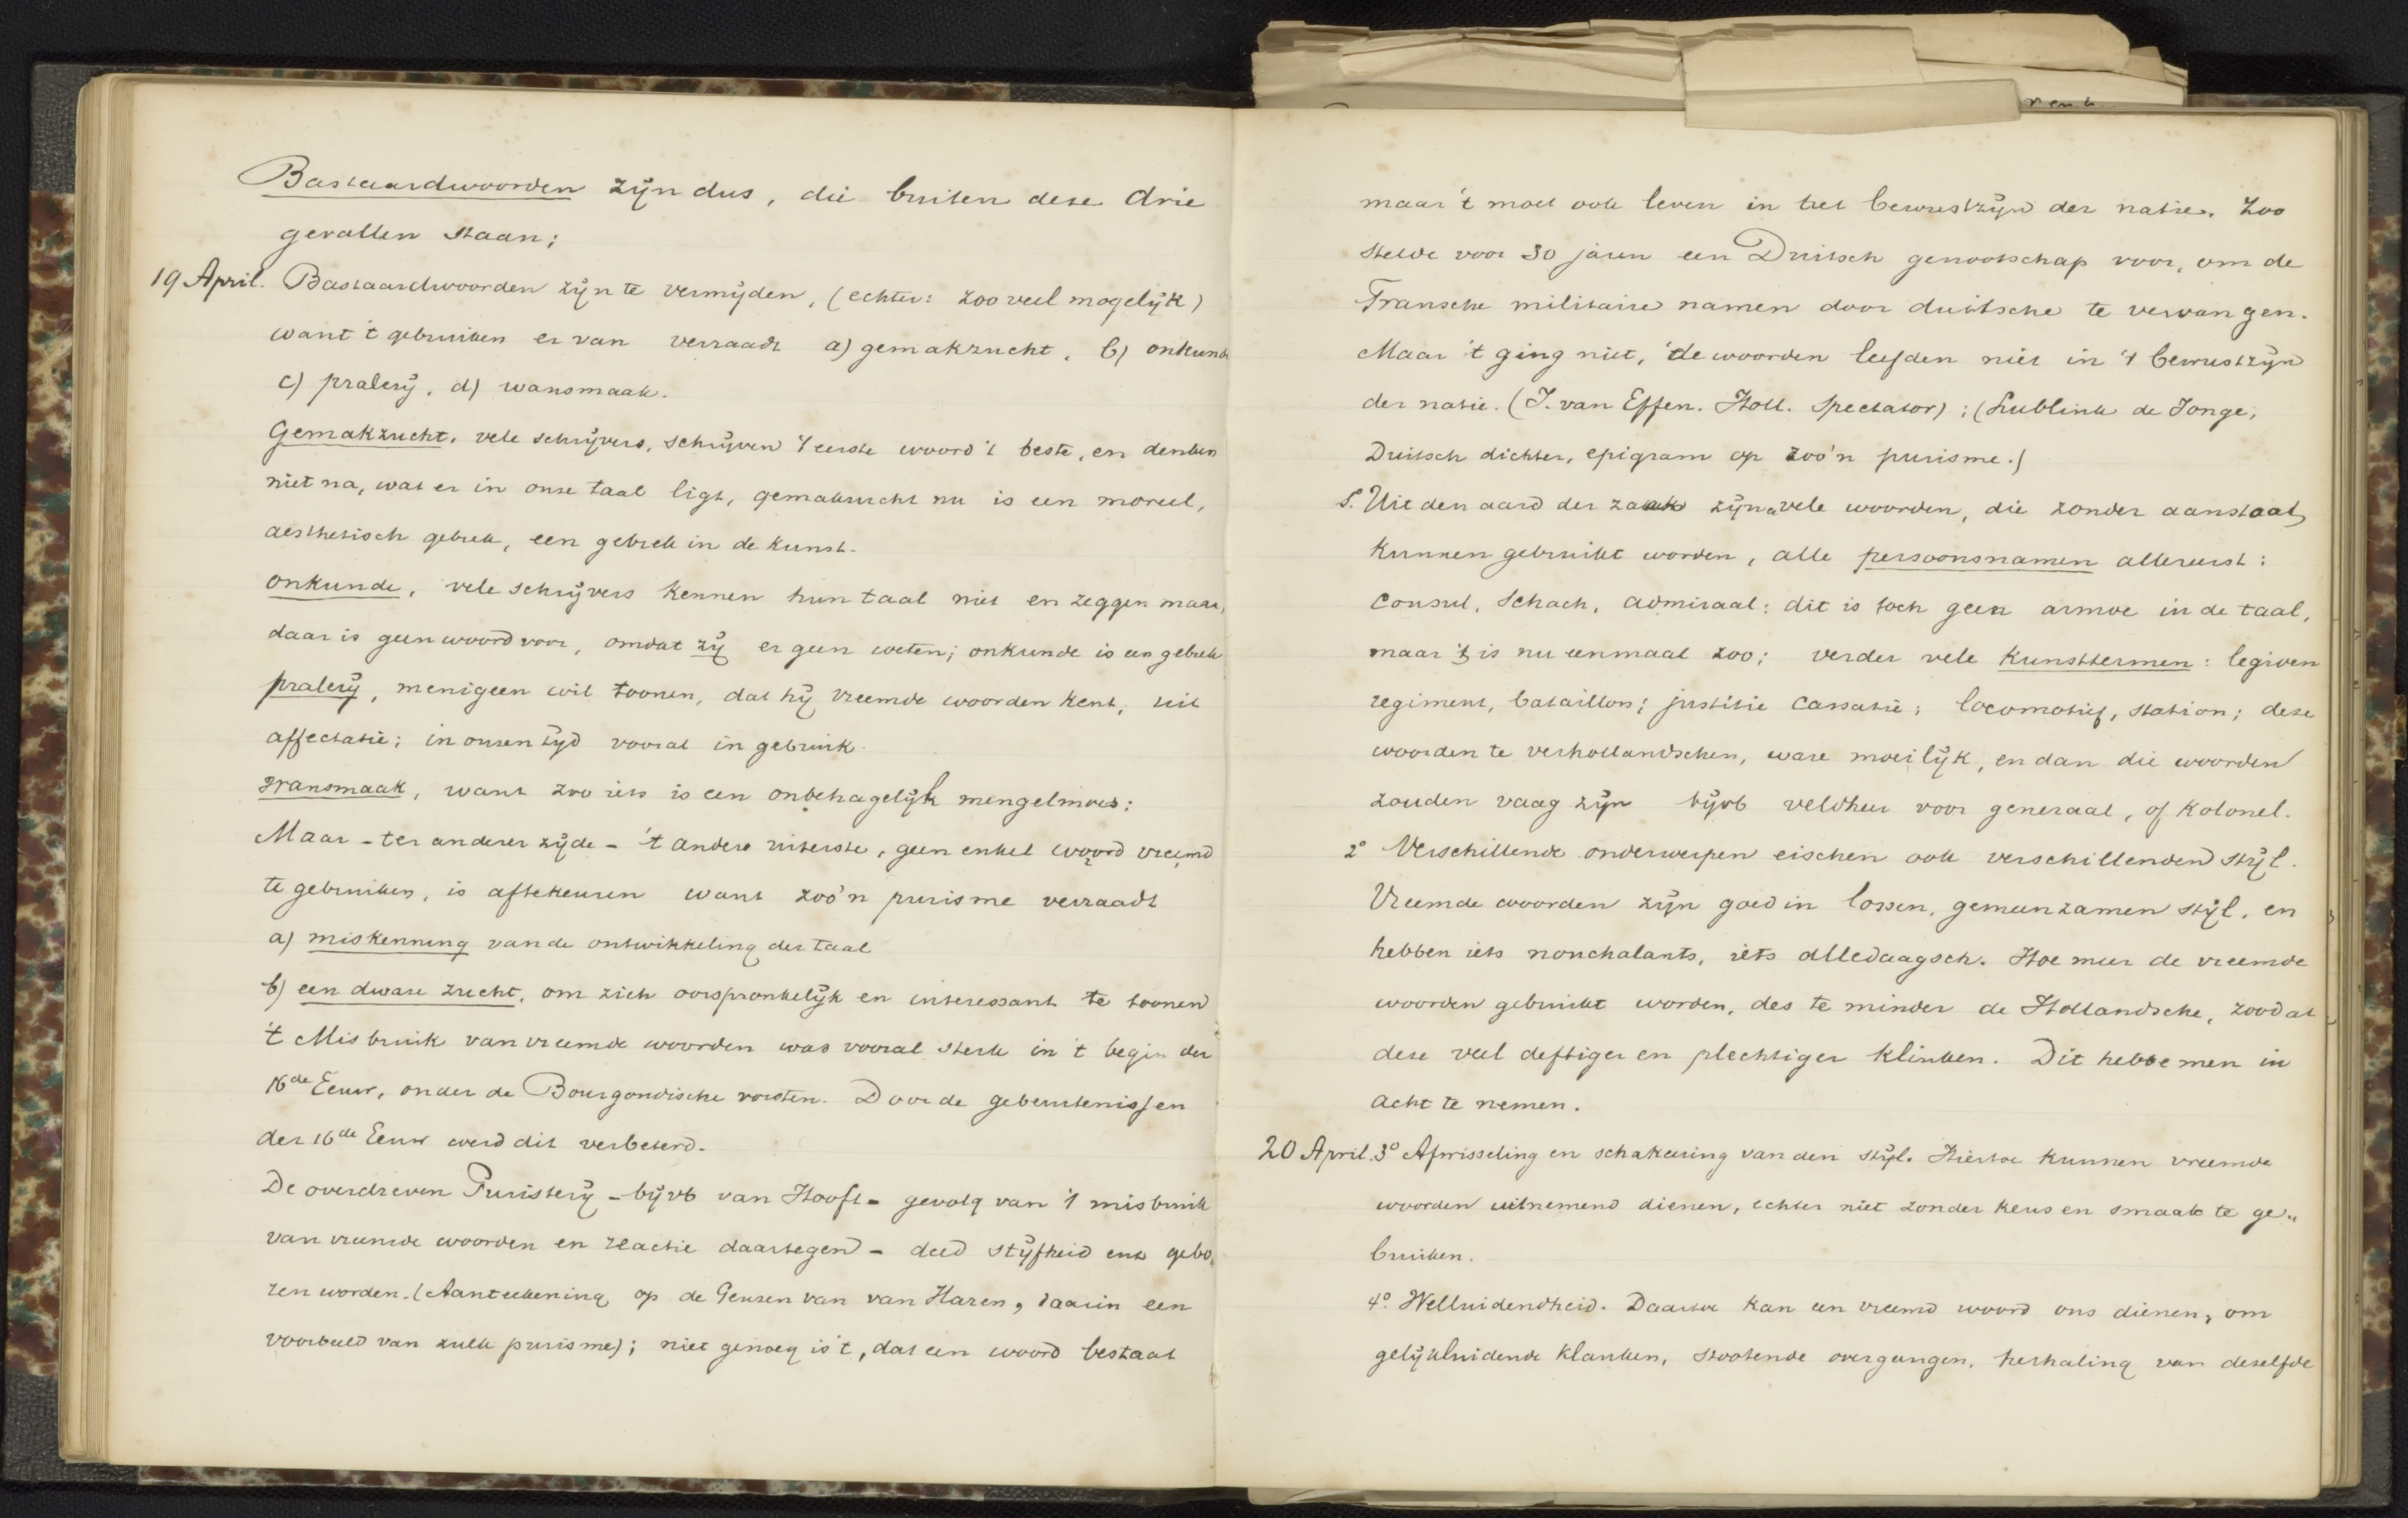 Bastaardwoorden zijn dus, die buiten deze drie
gevallen staan;
19 April. Bastaardwoorden zijn te vermijden, (echter: zoo veel mogelijk)
want 't gebruiken er van verraadt a) gemakzucht, b) onkunde
c) pralerij, d) wansmaak.
Gemakzucht, vele schrijvers, schrijven 't eerste woord 't beste, en denken
niet na, wat er in onze taal ligt, gemakzucht nu is een moreel,
aesthetisch gebrek, een gebrek in de kunst.
onkunde, vele schrijvers kennen hun taal niet en zeggen maar,
daar is geen woord voor, omdat zij er geen weten; onkunde is een gebrek
pralerij, menigeen wil toonen, dat hij vreemde woorden kent, uit
affectatie; in onzen tijd vooral in gebruik.
wansmaak, want zoo iets is een onbehagelijk mengelmoes:
Maar - ter anderer zijde - 't andere uiterste, geen enkel woord vreemd
te gebruiken, is aftekeuren want zoo'n purisme verraadt
a) miskenning van de ontwikkeling der taal
b) een dwaze zucht, om zich oorspronkelijk en interessant te toonen
't Misbruik van vreemde woorden was vooral sterk in 't begin der
16de Eeuw, onder de Bourgondische vorsten. Door de gebeurtenissen
der 16de Eeuw werd dit verbeterd.
De overdreven Puristerij - bijvb van Hooft - gevolg van 't misbruik
van vreemde woorden en reactie daartegen - deed stijfheid enz gebo„
ren worden. (Aanteekening op de Geuzen van van Haren, daarin een
voorbeeld van zulk purisme); niet genoeg is 't, dat een woord bestaat
maar 't moet ook leven in het bewustzijn der natie. Zoo
stelde voor 30 jaren een Duitsch genootschap voor, om de
Fransche militaire namen door duitsche te vervangen.
Maar 't ging niet, de woorden leefden niet in 't bewustzijn
der natie. (J. van Effen. Holl. Spectator); (Lublink de Jonge,
Duitsch dichter, epigram op zoo'n purisme.)
1. Uit den aard der zaak zijn vele woorden, die zonder aanstoot
kunnen gebruikt worden, alle persoonsnamen allereerst:
Consul, Schach, admiraal: dit is toch geen armoe in de taal,
maar 't is nu eenmaal zoo; verder vele kunsttermen: legioen
regiment, bataillon; justitie cassatie; locomotief, station; deze
woorden te verhollandschen, ware moeilijk, en dan die woorden
zouden vaag zijn bijvb veldheer voor generaal, of kolonel.
2° Verschillende onderwerpen eischen ook verschillenden stijl.
Vreemde woorden zijn goed in lossen, gemeenzamen stijl, en
hebben iets nonchalants, iets alledaagsch. Hoe meer de vreemde
woorden gebruikt worden, des te minder de Hollandsche, zoodat
deze veel deftiger en plechtiger klinken. Dit hebbe men in
acht te nemen.
20 April. 3° Afwisseling en schakeering van den stijl. Hiertoe kunnen vreemde
woorden uitnemend dienen, echter niet zonder keus en smaak te ge„
bruiken.
4° Welluidendheid. Daartoe kan een vreemd woord ons dienen, om
gelijkluidende klanken, stootende overgangen, herhaling van dezelfde